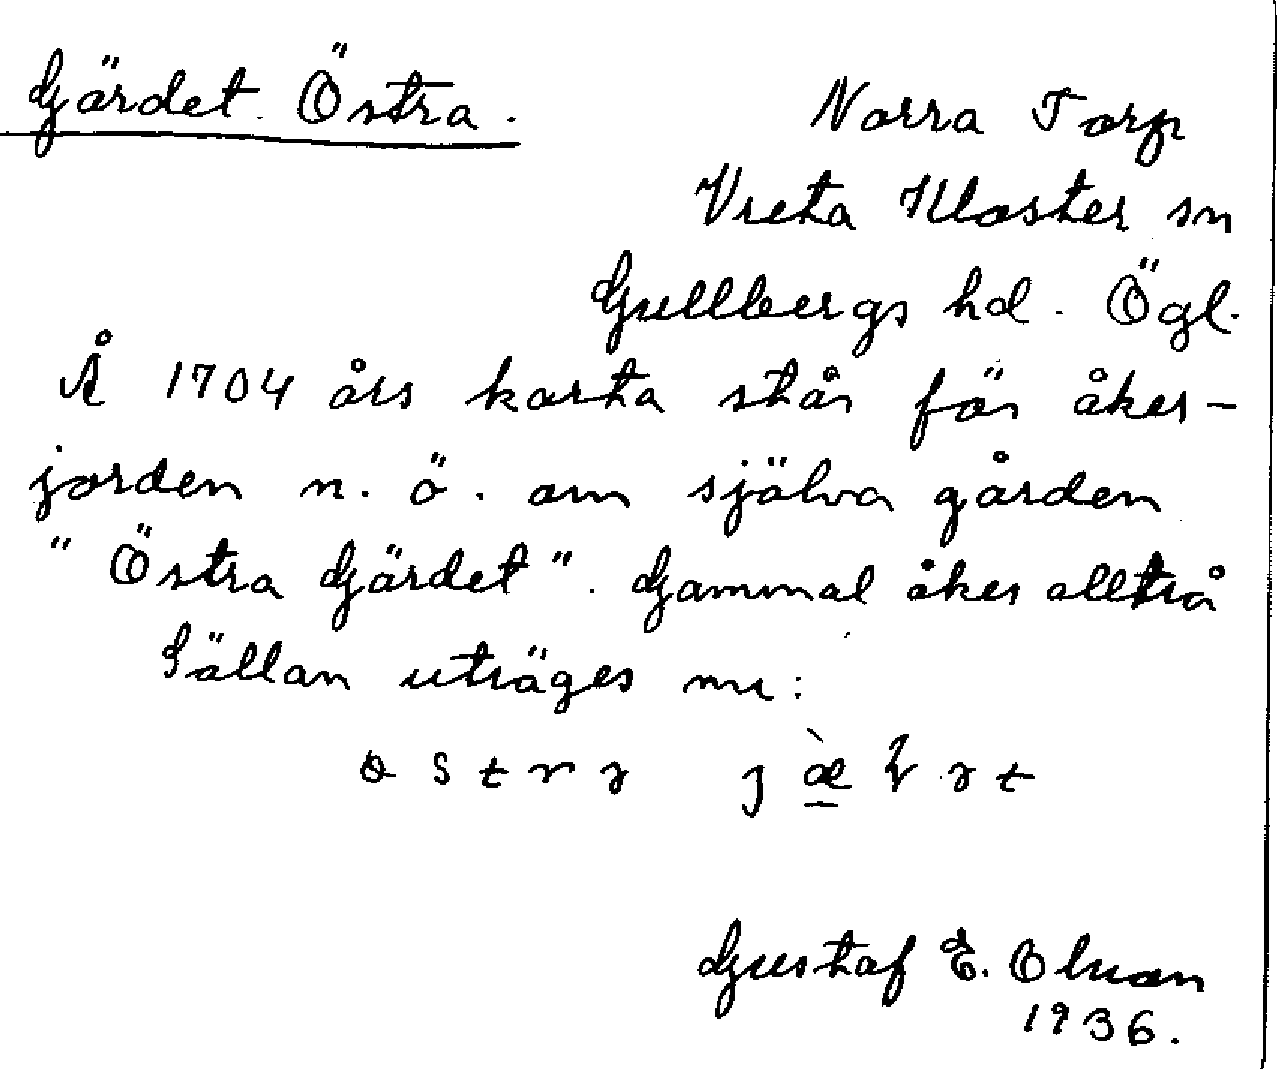 Gärdet Östra.
Norra Torp
Vreta Kloster sn
Gullbergs hd. Ögl.
Å 1704 års karta står för åker-
jorden n. ö. om själva gården
" Östra Gärdet". Gammal åker alltså
Sällan uträges nu:
Gustaf E. Olsson
1936.